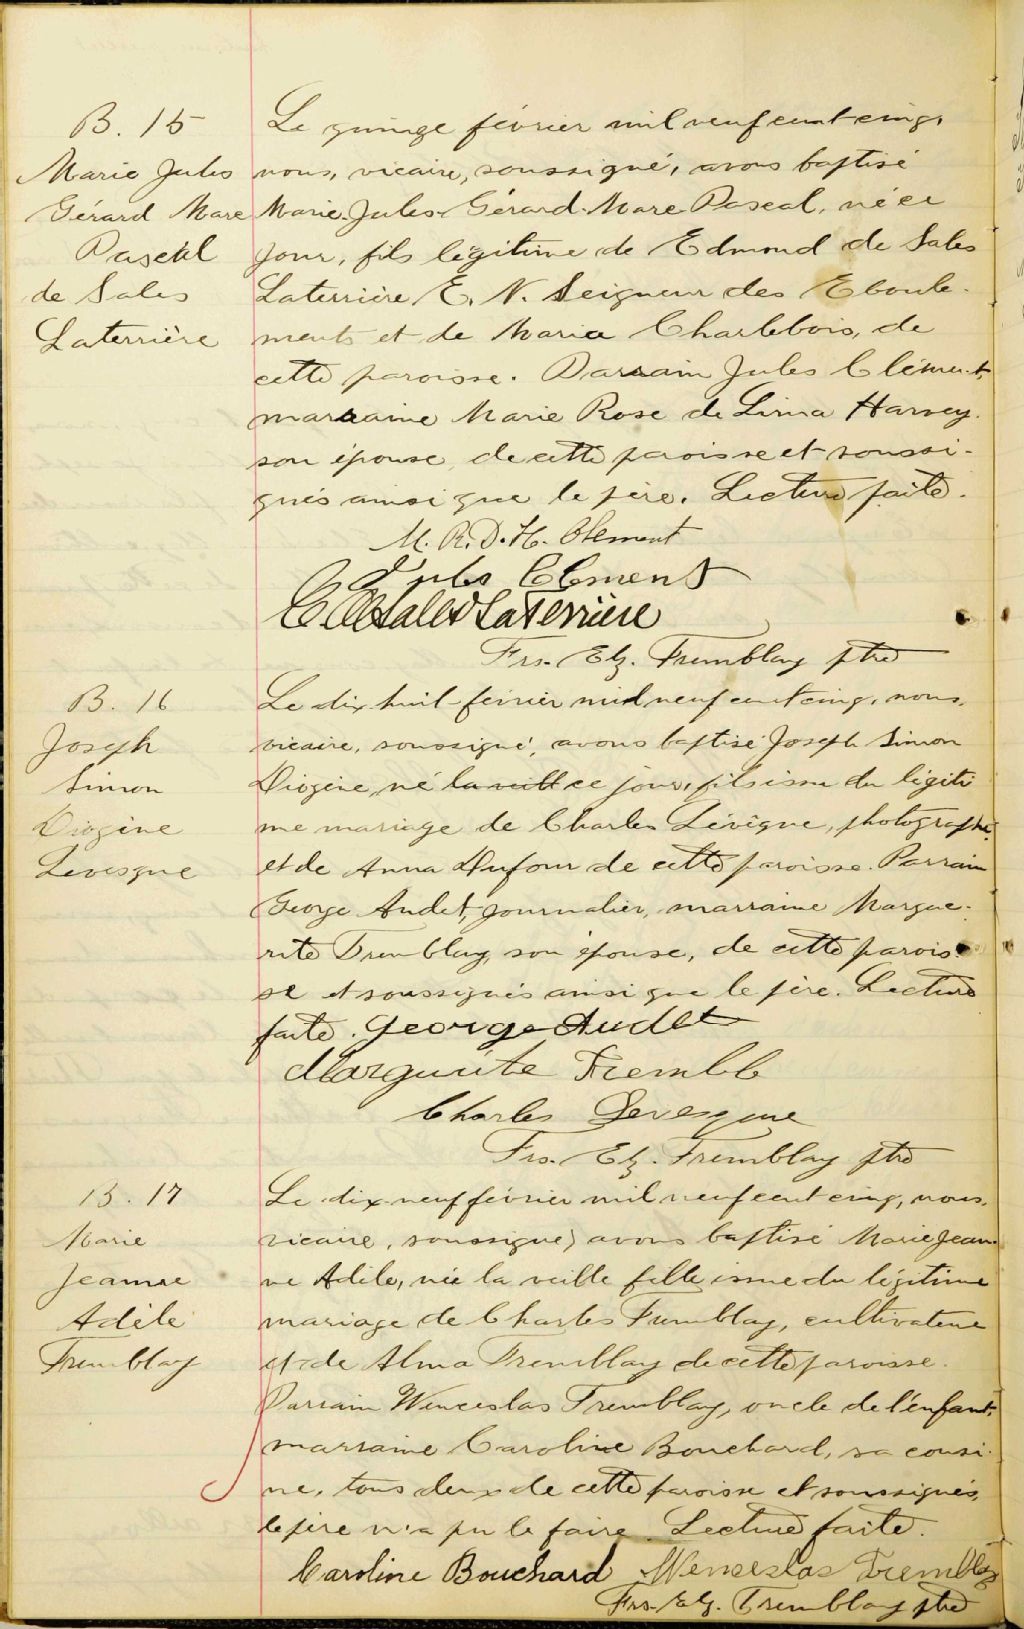 B. 15
Marie Jules
Gérard Marc
Pascal
de Sales
Laterrière
Le quinze février mil neuf cent cinq,
nous, vicaire, soussigné, avons baptisé
Marie-Jules-Gérard-Marc Pascal, né ce
jour, fils légitime de Edmond de Sales
Laterrière E. N. Seigneur des Eboule-
ments et de Maria Charlebois, de
cette paroisse. Parrain Jules Clément,
marraine Marie Rose de Lima Harvey
son épouse, de cette paroisse et soussi-
gnés ainsi que le père. Lecture faite.
M. R. D. H. Clement
Jules Clement
E de Sales LaTerrière
Frs. Elz. Tremblay ptre
B. 16
Joseph
Simon
Diogène
Levesque
Le dix huit février mil neuf cent cinq, nous,
vicaire, soussigné, avons baptisé Joseph Simon
Diogène, né la veille ce jour, fils issu du légiti
me mariage de Charles Lévêque, photographe,
et de Anna Dufour de cette paroisse. Parrain
George Audet, journalier, marraine Margue-
rite Tremblay, son épouse, de cette parois-
se et soussignés ainsi que le père. Lecture
faite. George Audet
Marguerite Tremble
Charles Levesque
Frs. Elz. Tremblay ptre
B. 17
Marie
Jeanne
Adèle
Tremblay
Le dix-neuf février mil neuf cent cinq, nous,
vicaire, soussigné, avons baptisé Marie Jean-
ne Adèle, née la veille fille issue du légitime
mariage de Charles Tremblay, cultivateur
et de Alma Tremblay de cette paroisse.
Parrain Wenceslas Tremblay, oncle de l'enfant,
marraine Caroline Bouchard, sa cousi-
ne, tous deux de cette paroisse et soussignés,
le père n'a pu le faire. Lecture faite.
Caroline Bouchard Wenceslas Tremblay
Frs. Elz. Tremblay ptre